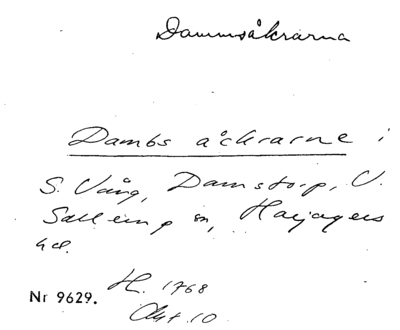 Dammsåkrarna
Dambs åckrarne i
S. Vång, Damstorp, V.
Salleerup sn, Harjagers
hd.
H. 1768
Nr 9629.
Akt 10